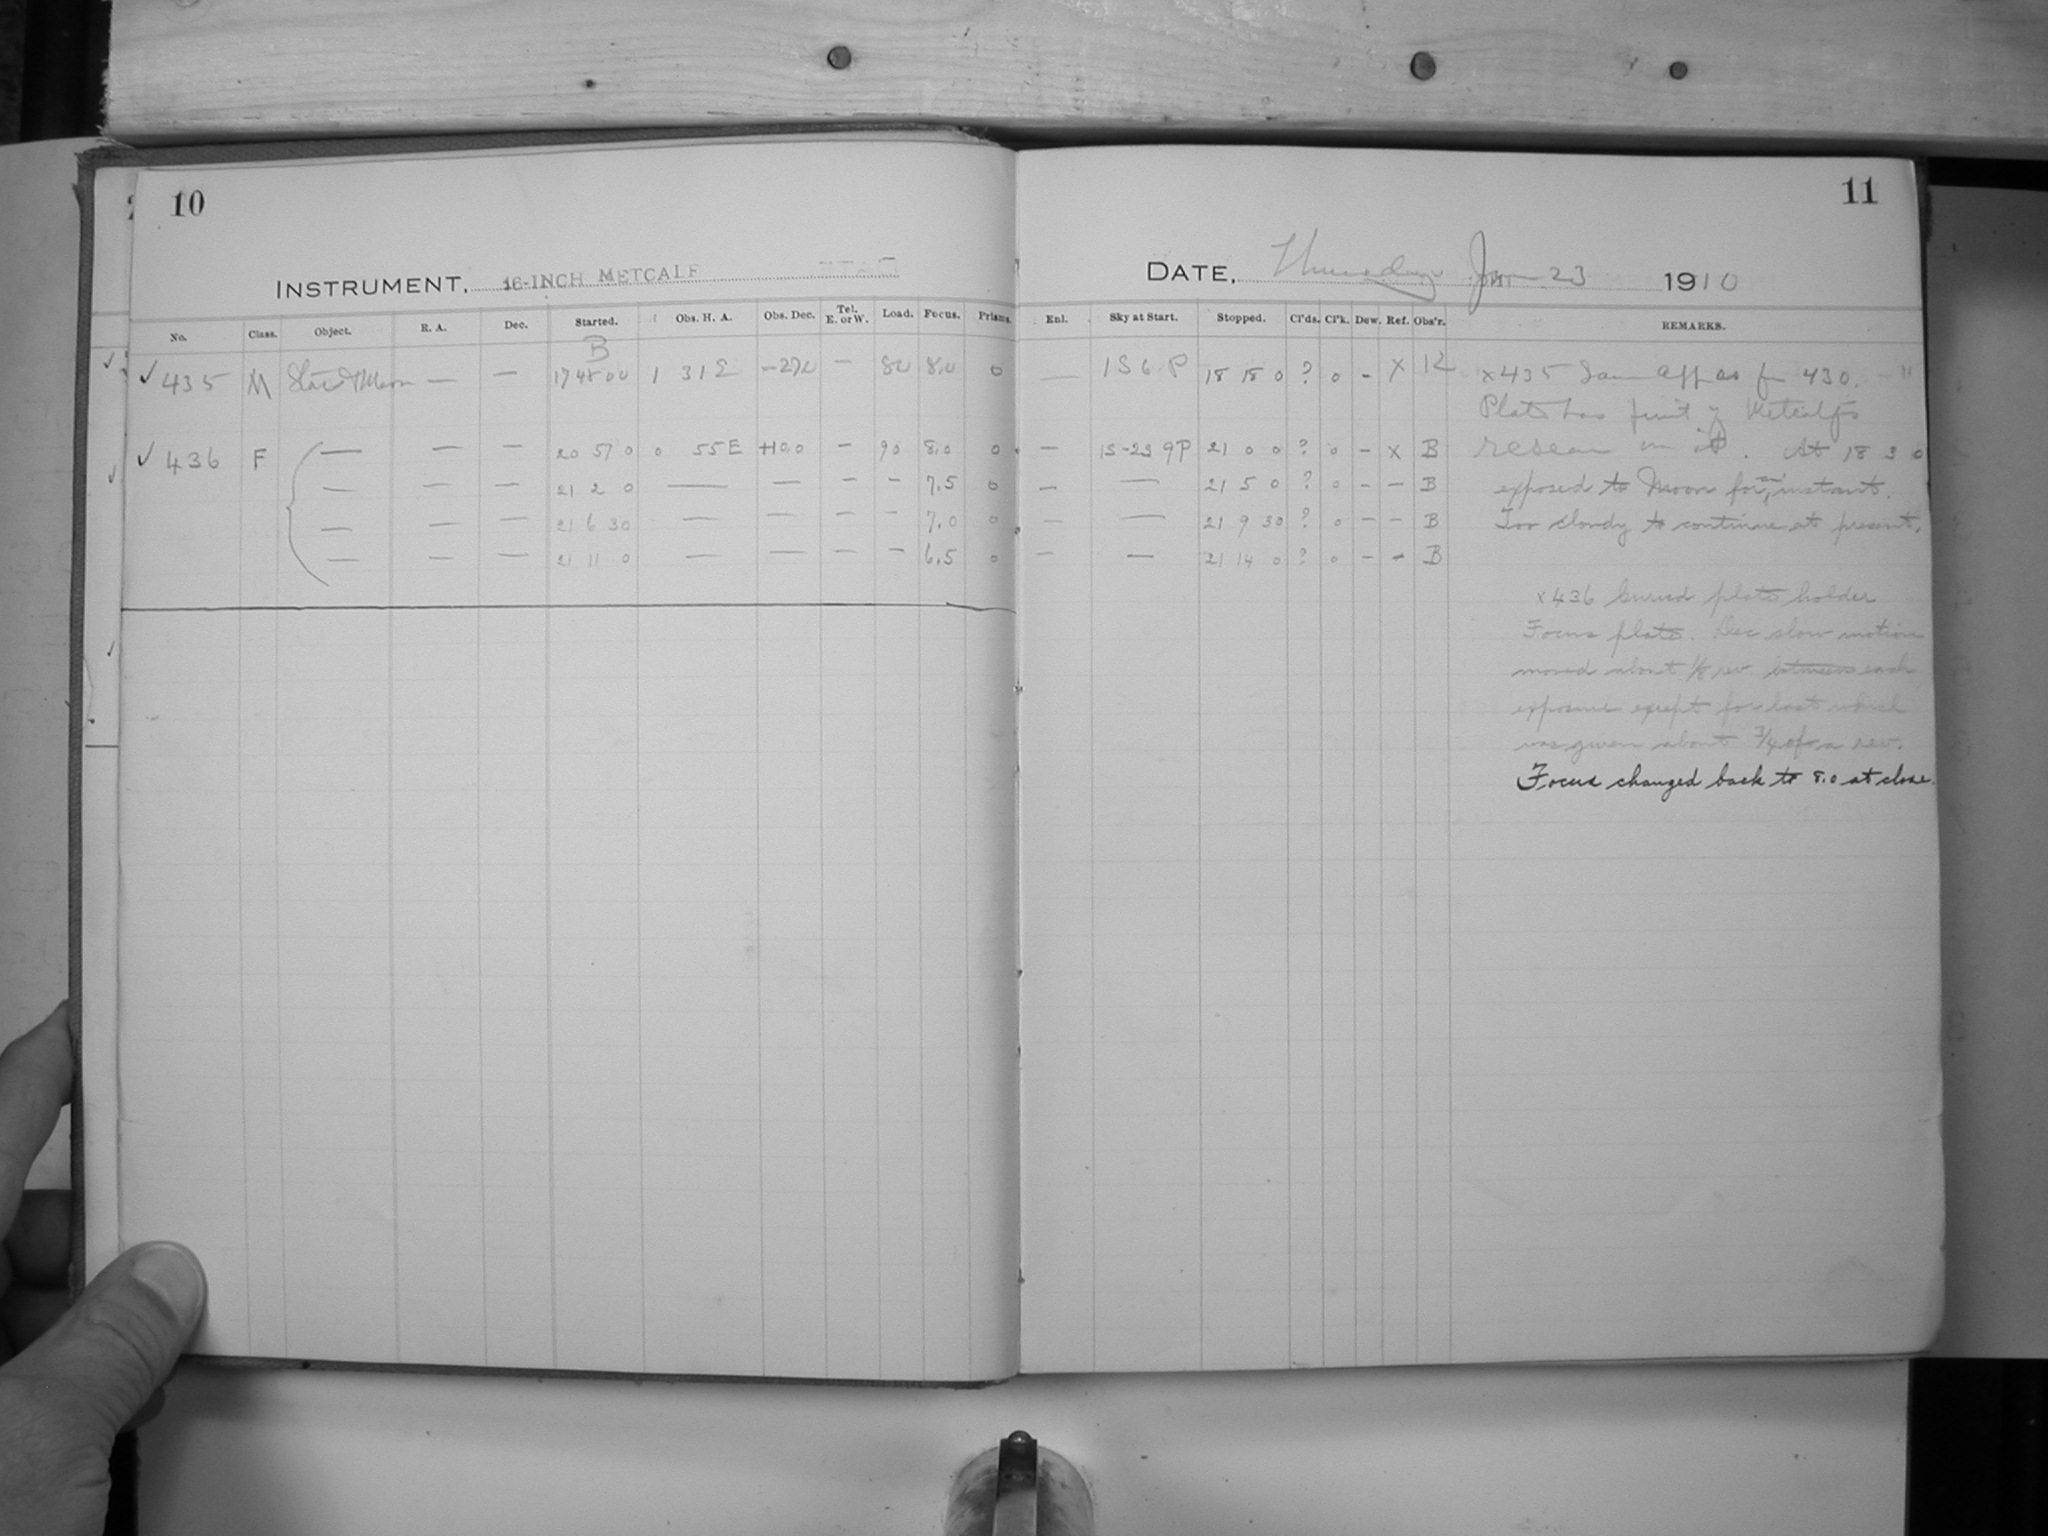 10
INSTRUMENT. 16-INCH METCALF
No. Class. Object. R. A. Dec. Started. Obs. H. A. Obs. Dec. Tel. E. or W. Load. Focus. Prisms.
B
✓ 435 M Star & Moon — — 17 48 00 1 31 E — 80 8.0 0
✓ 436 F — — — 20 57 0 0 55 E +10.0 — 90 8.0 0
— — — 21 2 0 — — — — 7.5 0
— — — 21 6 30 — — — — 7.0 0
— — — 21 11 0 — — — — 6.5 0
11
DATE, Thursday Jan 23 1910
Enl. Sky at Start. Stopped. Cl'ds. Cl'k. Dew. Ref. Obs'r. REMARKS.
— 1S 6 P 18 18 0 ? 0 - X
— 1S-2S 9P 21 0 0 ? 0 - X B
— — 21 5 0 ? 0 - - B
— — 21 9 30 ? 0 - - B
— — 21 14 0 ? 0 - - B
x435 Same app as for 430.
Plate has print of Metcalf's
reseau on it. At 18 3 0
exposed to Moon for an instant.
Too cloudy to continue at present.
x436 Curved plate holder
Focus plate. Dec slow motion
moved about 1/8 rev. between each
exposure except for last which
was given about 3/4 of a rev.
Focus changed back to 8.0 at close.